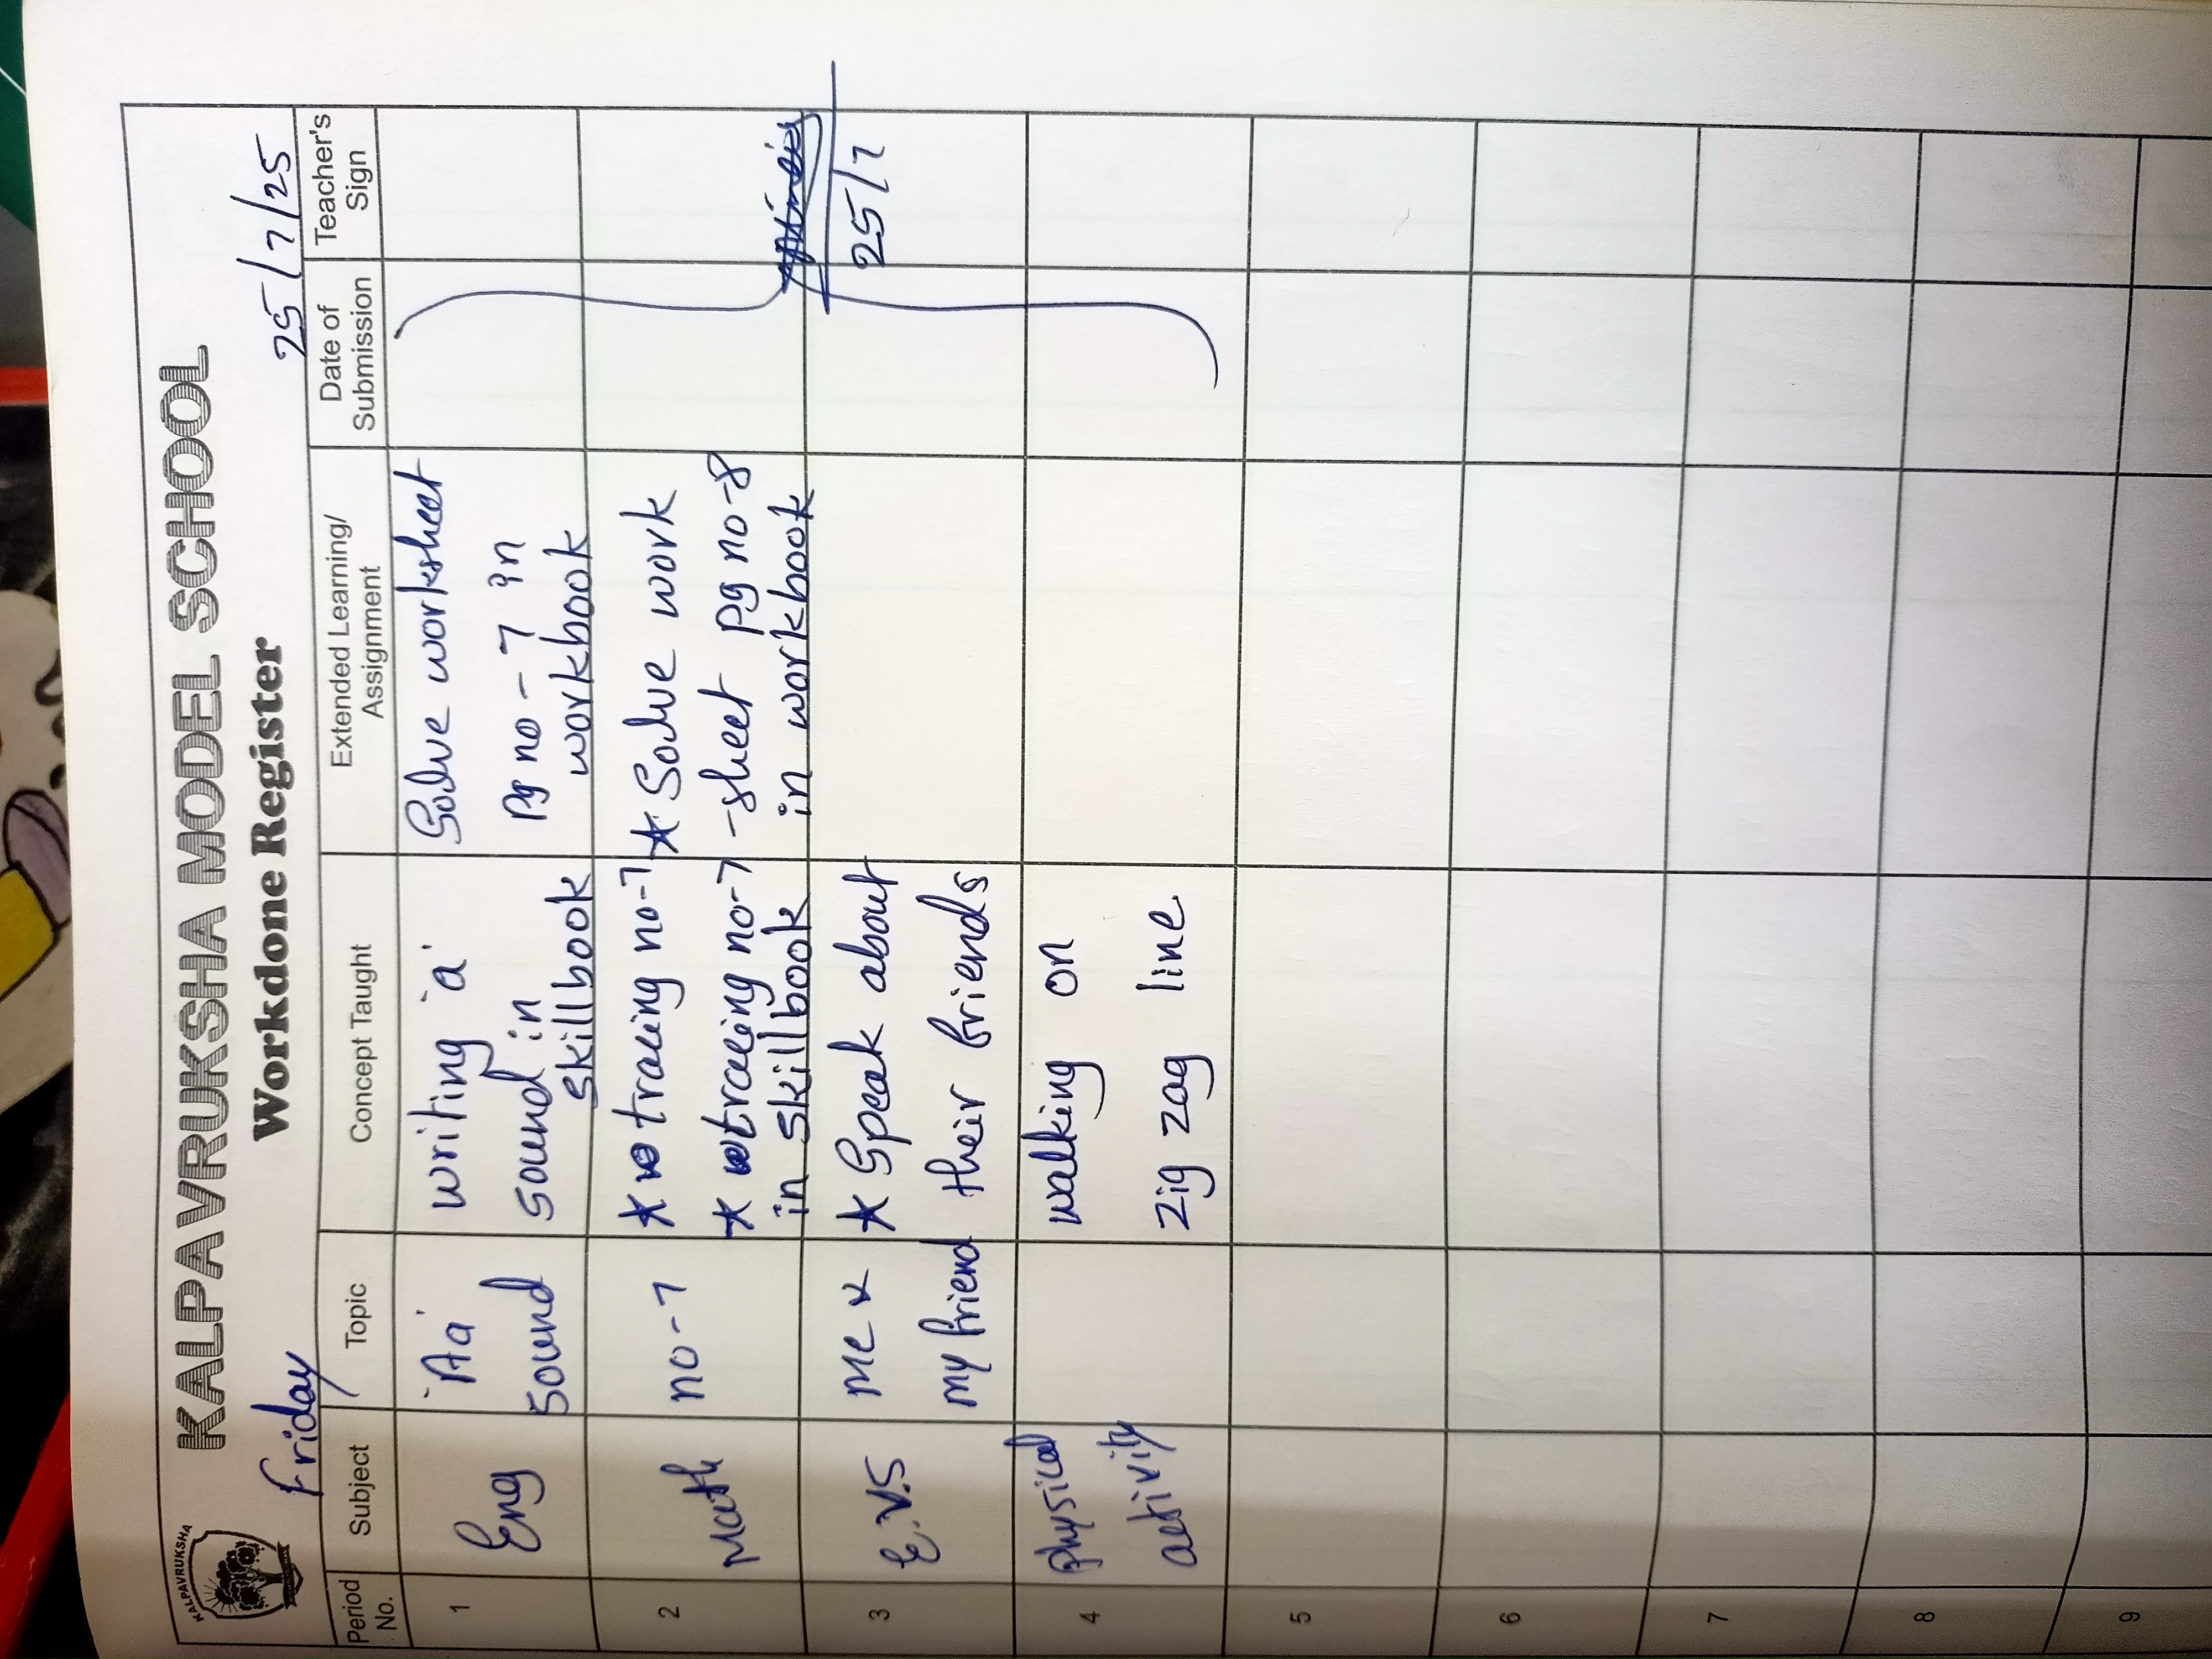 KALPAVRUKSHA
KALPAVRUKSHA MODEL SCHOOL
Workdone Register
Friday
25/7/25
Period No.
Subject
Topic
Concept Taught
Extended Learning/ Assignment
Date of Submission
Teacher's Sign
1
Eng
'Aa'
sound
writing 'a'
sound in
skillbook
Solve worksheet
Pg no - 7 in
workbook
2
Math
no - 7
* tracing no-7
* tracing no-7
in skillbook
* Solve work
-sheet pg no-8
in workbook
25/7
3
E.V.S
Me &
my friend
* Speak about
their friends
4
physical
activity
walking on
zig zag line
5
6
7
8
9